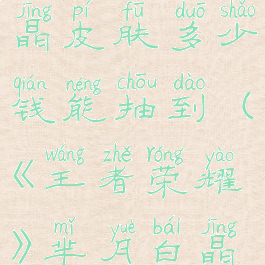 jīng pí fū duō shǎo
晶皮肤多少
qián néng chōu dào
钱能抽到（
wáng zhě róng yào
《王者荣耀
mǐ yuè bái jīng
》芈月白晶